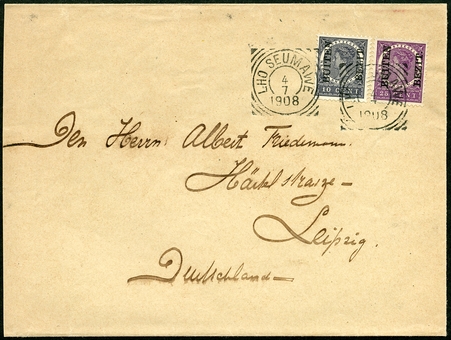 LHO SEUMAWE
4
7
1908
BUITEN BEZIT
10 CENT
BUITEN BEZIT
25 CENT
1908
Den Herrn Albert Friedemann.
Leipzig.
Deutschland